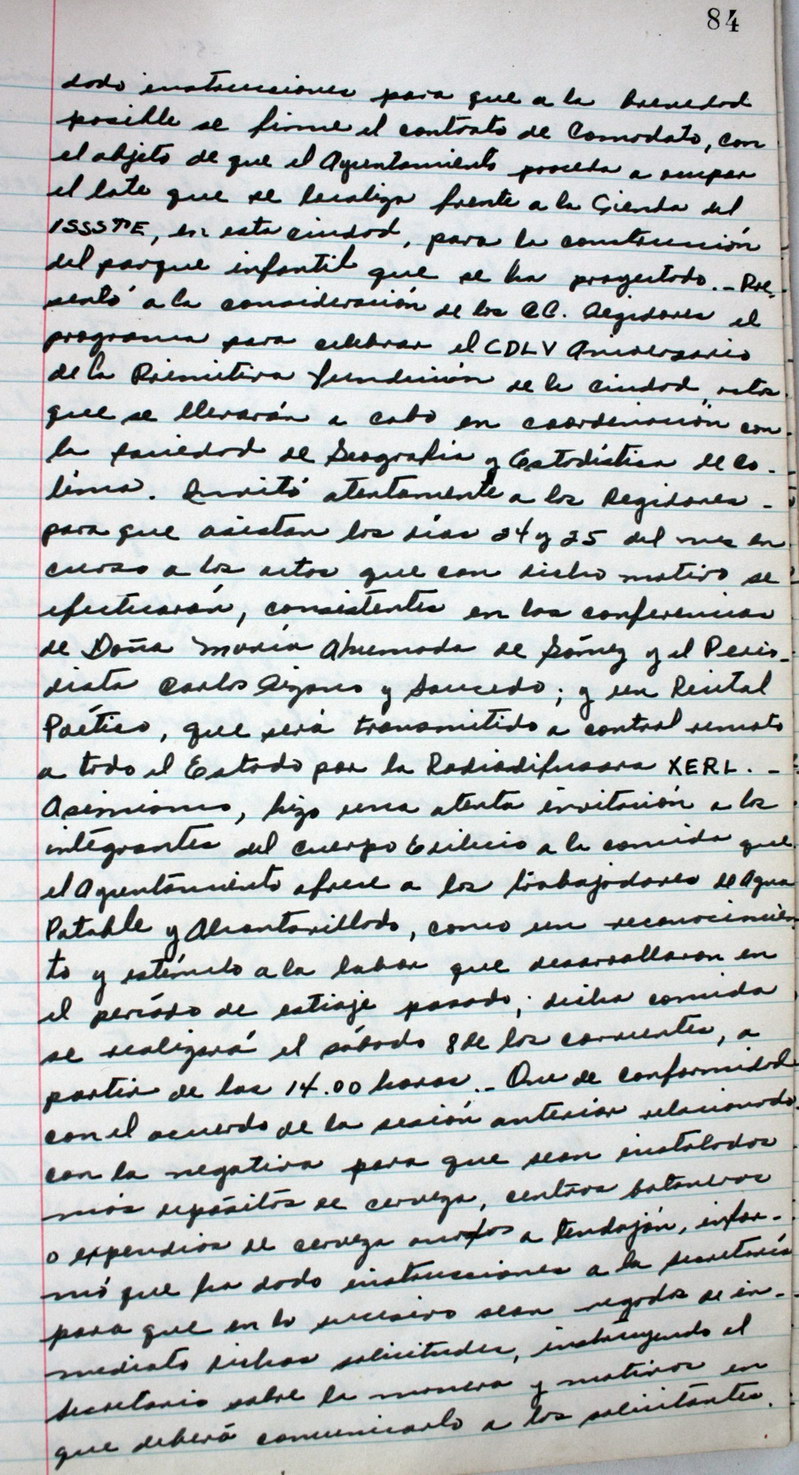 84
dado instrucciones para que a la brevedad
posible se firme el contrato de Comodato, con
el objeto de que el Ayuntamiento proceda a ocupar
el lote que se localiza frente a la Tienda del
ISSSTE, en esta ciudad, para la construcción
del parque infantil que se ha proyectado._ Pre-
sentó a la consideración de los CC. Regidores el
programa para celebrar el CDLV Aniversario
de la Primitiva fundición de la ciudad, actos
que se llevarán a cabo en coordinación con
la sociedad de Geografía y Estadística de Co-
lima. Invitó atentamente a los Regidores -
para que asistan los días 24 y 25 del mes en
curso a los actos que con dicho motivo se
efectuarán, consistentes en las conferencias
de Doña María Ahumada de Gómez y el Perio-
dista Carlos Pizano y Saucedo; y un Recital
Poético, que será transmitido a control remoto
a todo el Estado por la Radiodifusora XERL. -
Asimismo, hizo una atenta invitación a los
integrantes del Cuerpo Edilicio a la comida que
el Ayuntamiento ofrece a los trabajadores de Agua
Potable y Alcantarillado, como un reconocimien-
to y estímulo a la labor que desarrollaron en
el período de estiaje pasado; dicha comida
se realizará el sábado 8 de los corrientes, a
partir de las 14.00 horas._ Que de conformidad
con el acuerdo de la sesión anterior relacionado
con la negativa para que sean instalados
más depósitos de cerveza, centros botaneros
o expendios de cerveza anexos a tendajón, infor-
mó que ha dado instrucciones a la secretaría
para que en lo sucesivo sean negadas de in-
mediato dichas solicitudes, instruyendo al
Secretario sobre la manera y motivos en
que deberá comunicarlo a los solicitantes.